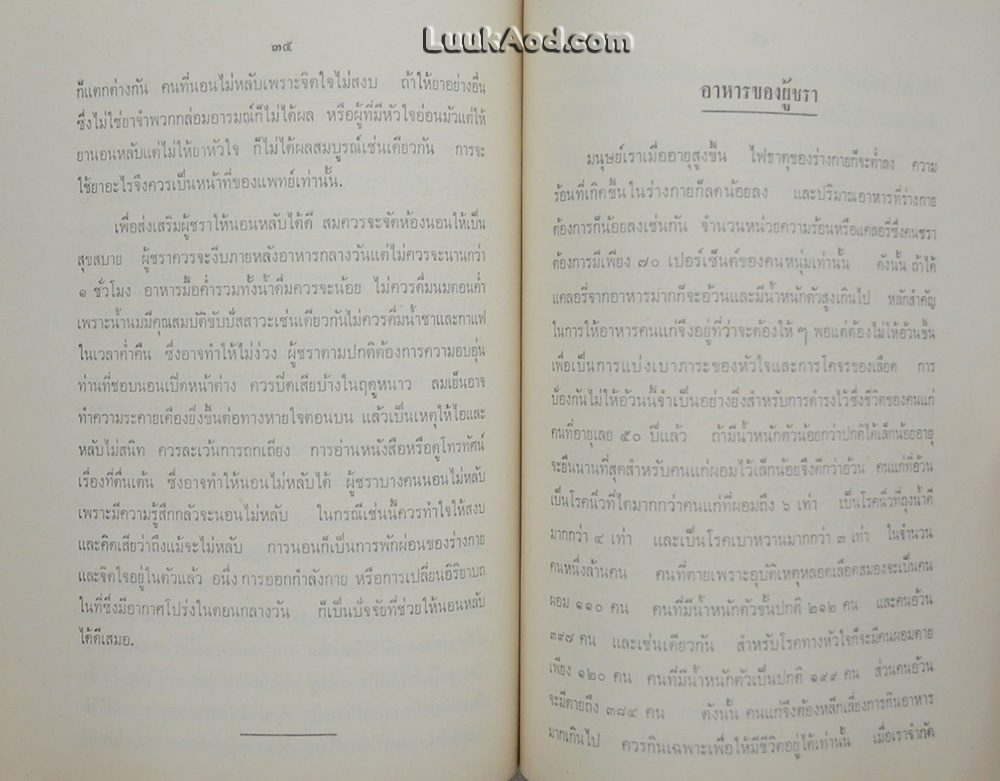 LuukAod.com
๓๕
ก็แตกต่างกัน คนที่นอนไม่หลับเพราะจิตใจไม่สงบ ถ้าให้ยาอย่างอื่น
ซึ่งไม่ใช่ยาจำพวกกล่อมอารมณ์ก็ไม่ได้ผล หรือผู้ที่มีหัวใจอ่อนมัวแต่ให้
ยานอนหลับแต่ไม่ให้ยาหัวใจ ก็ไม่ได้ผลสมบูรณ์เช่นเดียวกัน การจะ
ใช้ยาอะไรจึงควรเป็นหน้าที่ของแพทย์เท่านั้น.
เพื่อส่งเสริมผู้ชราให้นอนหลับได้ดี สมควรจะจัดห้องนอนให้เป็น
สุขสบาย ผู้ชราควรจะงีบภายหลังอาหารกลางวันแต่ไม่ควรจะนานกว่า
๑ ชั่วโมง อาหารมื้อค่ำรวมทั้งน้ำดื่มควรจะน้อย ไม่ควรดื่มนมตอนค่ำ
เพราะน้ำนมมีคุณสมบัติขับปัสสาวะเช่นเดียวกันไม่ควรดื่มน้ำชาและกาแฟ
ในเวลาค่ำคืน ซึ่งอาจทำให้ไม่ง่วง ผู้ชราตามปกติต้องการความอบอุ่น
ท่านที่ชอบนอนเปิดหน้าต่าง ควรปิดเสียบ้างในฤดูหนาว ลมเย็นอาจ
ทำความระคายเคืองยิ่งขึ้นต่อทางหายใจตอนบน แล้วเป็นเหตุให้ไอและ
หลับไม่สนิท ควรละเว้นการถกเถียง การอ่านหนังสือหรือดูโทรทัศน์
เรื่องที่ตื่นเต้น ซึ่งอาจทำให้นอนไม่หลับได้ ผู้ชราบางคนนอนไม่หลับ
เพราะมีความรู้สึกกลัวจะนอนไม่หลับ ในกรณีเช่นนี้ควรทำใจให้สงบ
และคิดเสียว่าถึงแม้จะไม่หลับ การนอนก็เป็นการพักผ่อนของร่างกาย
และจิตใจอยู่ในตัวแล้ว อนึ่ง การออกกำลังกาย หรือการเปลี่ยนอิริยาบถ
ในที่ซึ่งมีอากาศโปร่งในตอนกลางวัน ก็เป็นปัจจัยที่ช่วยให้นอนหลับ
ได้ดีเสมอ.
อาหารของผู้ชรา
มนุษย์เราเมื่ออายุสูงขึ้น ไฟธาตุของร่างกายก็จะต่ำลง ความ
ร้อนที่เกิดขึ้นในร่างกายก็ลดน้อยลง และปริมาณอาหารที่ร่างกาย
ต้องการก็น้อยลงเช่นกัน จำนวนหน่วยความร้อนหรือแคลอรี่ซึ่งคนชรา
ต้องการมีเพียง ๗๐ เปอร์เซ็นต์ของคนหนุ่มเท่านั้น ดังนั้น ถ้าได้
แคลอรี่จากอาหารมากก็จะอ้วนและมีน้ำหนักตัวสูงเกินไป หลักสำคัญ
ในการให้อาหารคนแก่จึงอยู่ที่ว่าจะต้องให้ ๆ พอแต่ต้องไม่ให้อ้วนขึ้น
เพื่อเป็นการแบ่งเบาภาระของหัวใจและการโคจรของเลือด การ
ป้องกันไม่ให้อ้วนนี้จำเป็นอย่างยิ่งสำหรับการดำรงไว้ซึ่งชีวิตของคนแก่
คนที่อายุเลย ๕๐ ปีแล้ว ถ้ามีน้ำหนักตัวน้อยกว่าปกติได้เล็กน้อยอายุ
จะยืนนานที่สุดสำหรับคนแก่ผอมไว้เล็กน้อยจึงดีกว่าอ้วน คนแก่ที่อ้วน
เป็นโรคนิ่วที่ไตมากกว่าคนแก่ที่ผอมถึง ๖ เท่า เป็นโรคนิ่วที่ถุงน้ำดี
มากกว่า ๔ เท่า และเป็นโรคเบาหวานมากกว่า ๓ เท่า ในจำนวน
คนหนึ่งล้านคน คนที่ตายเพราะอุบัติเหตุหลอดเลือดสมองจะเป็นคน
ผอม ๑๑๐ คน คนที่มีน้ำหนักตัวขั้นปกติ ๒๑๒ คน และคนอ้วน
๓๙๗ คน และเช่นเดียวกัน สำหรับโรคทางหัวใจก็จะมีคนผอมตาย
เพียง ๑๒๐ คน คนที่มีน้ำหนักตัวเป็นปกติ ๑๙๙ คน ส่วนคนอ้วน
จะมีตายถึง ๓๘๔ คน ดังนั้น คนแก่จึงต้องหลีกเลี่ยงการกินอาหาร
มากเกินไป ควรกินเฉพาะเพื่อให้มีชีวิตอยู่ได้เท่านั้น เมื่อเราจำกัด